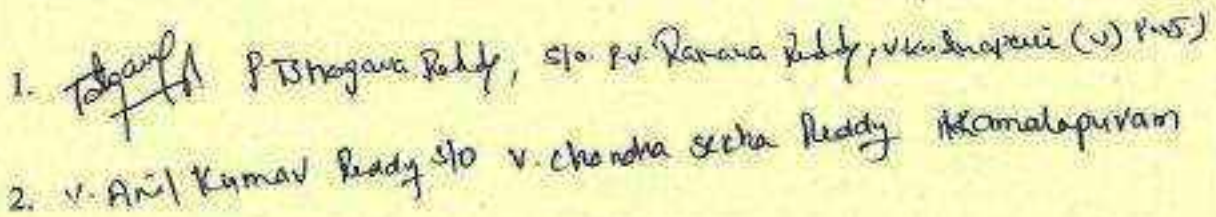 1. P Bhargava Reddy, S/o. P.V. Ramana Reddy, (V)
2. V. Anil Kumar Reddy S/o V. Chandra Sekha Reddy Kamalapuram